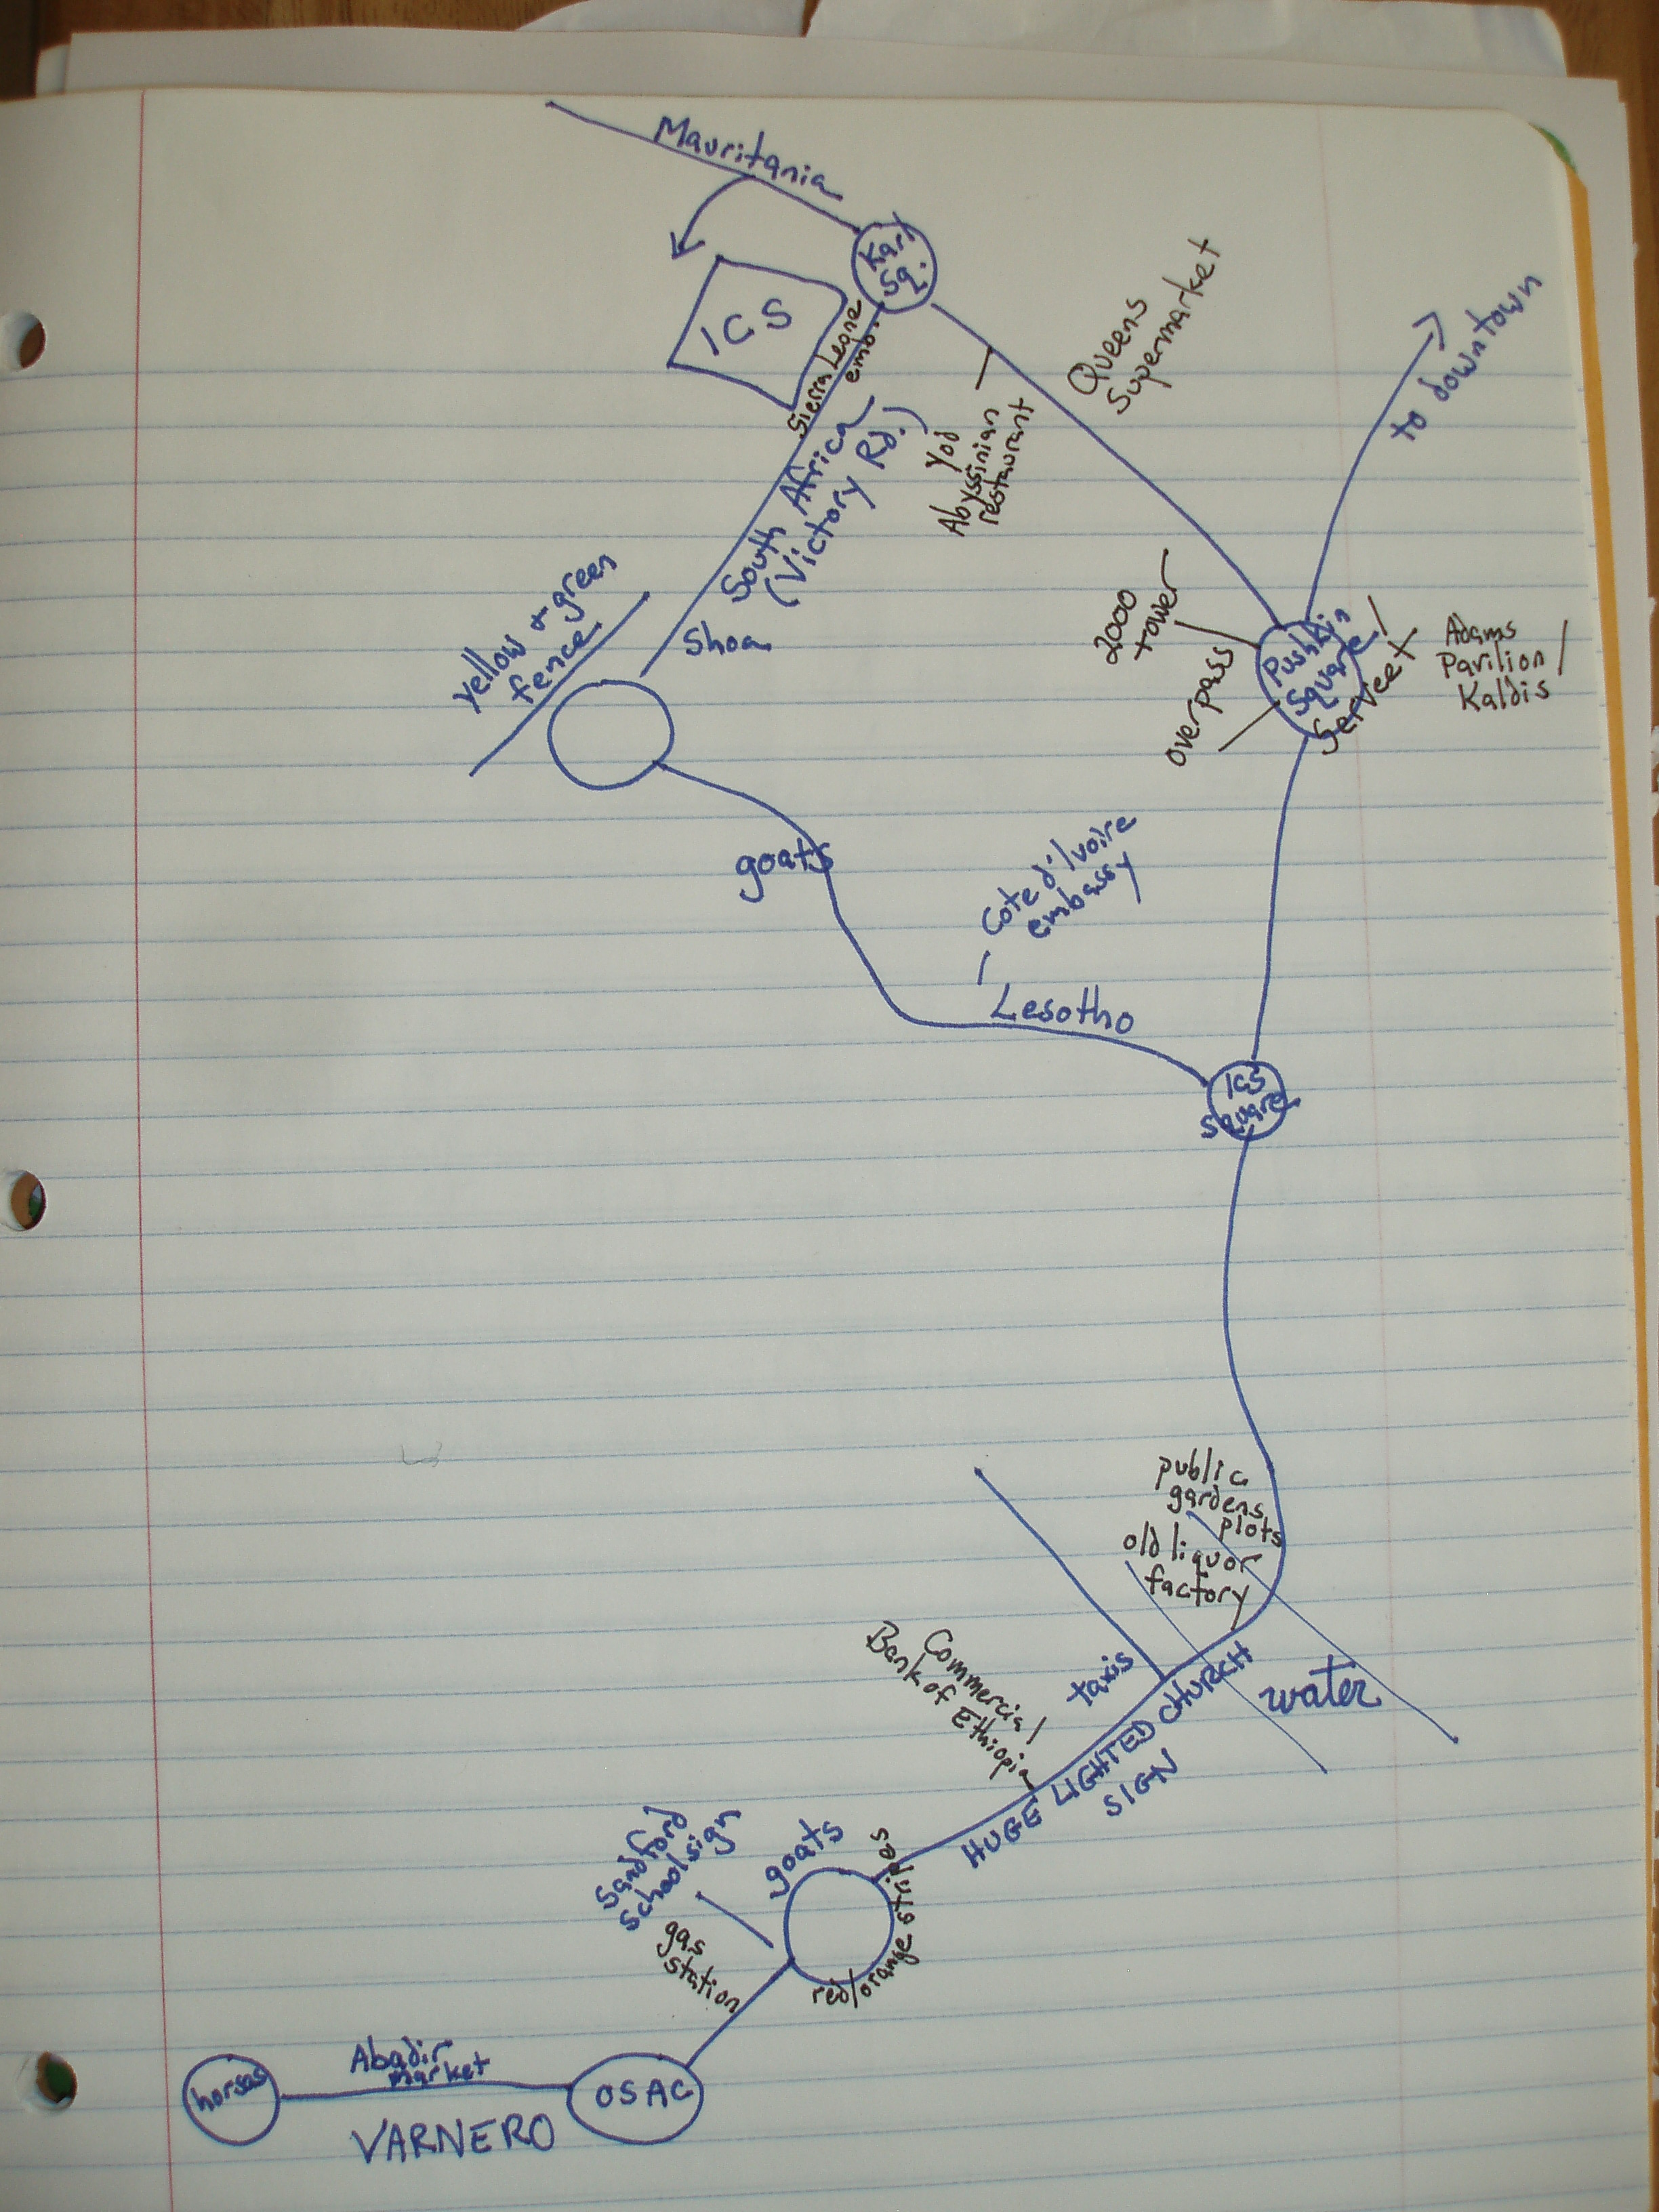 Mauritania
Karl
Sq.
ICS
Sierra Leone
emb.
South Africa
(Victory Rd.)
Yod
Abyssinian
restaurant
Queens
Supermarket
to downtown
yellow + green
fence
Shoa
2000
tower
overpass
Pushkin
Square/
Serveex
Adams
Pavilion/
Kaldis
goats
Cote d'Ivoire
embassy
Lesotho
ICS
Square
public
gardens
plots
old liquor
factory
water
taxis
Commercial
Bank of Ethiopia
HUGE LIGHTED CHURCH
SIGN
Sandford
School sign
goats
red/orange stripes
gas
station
horses
Abadir
market
VARNERO
OSAC